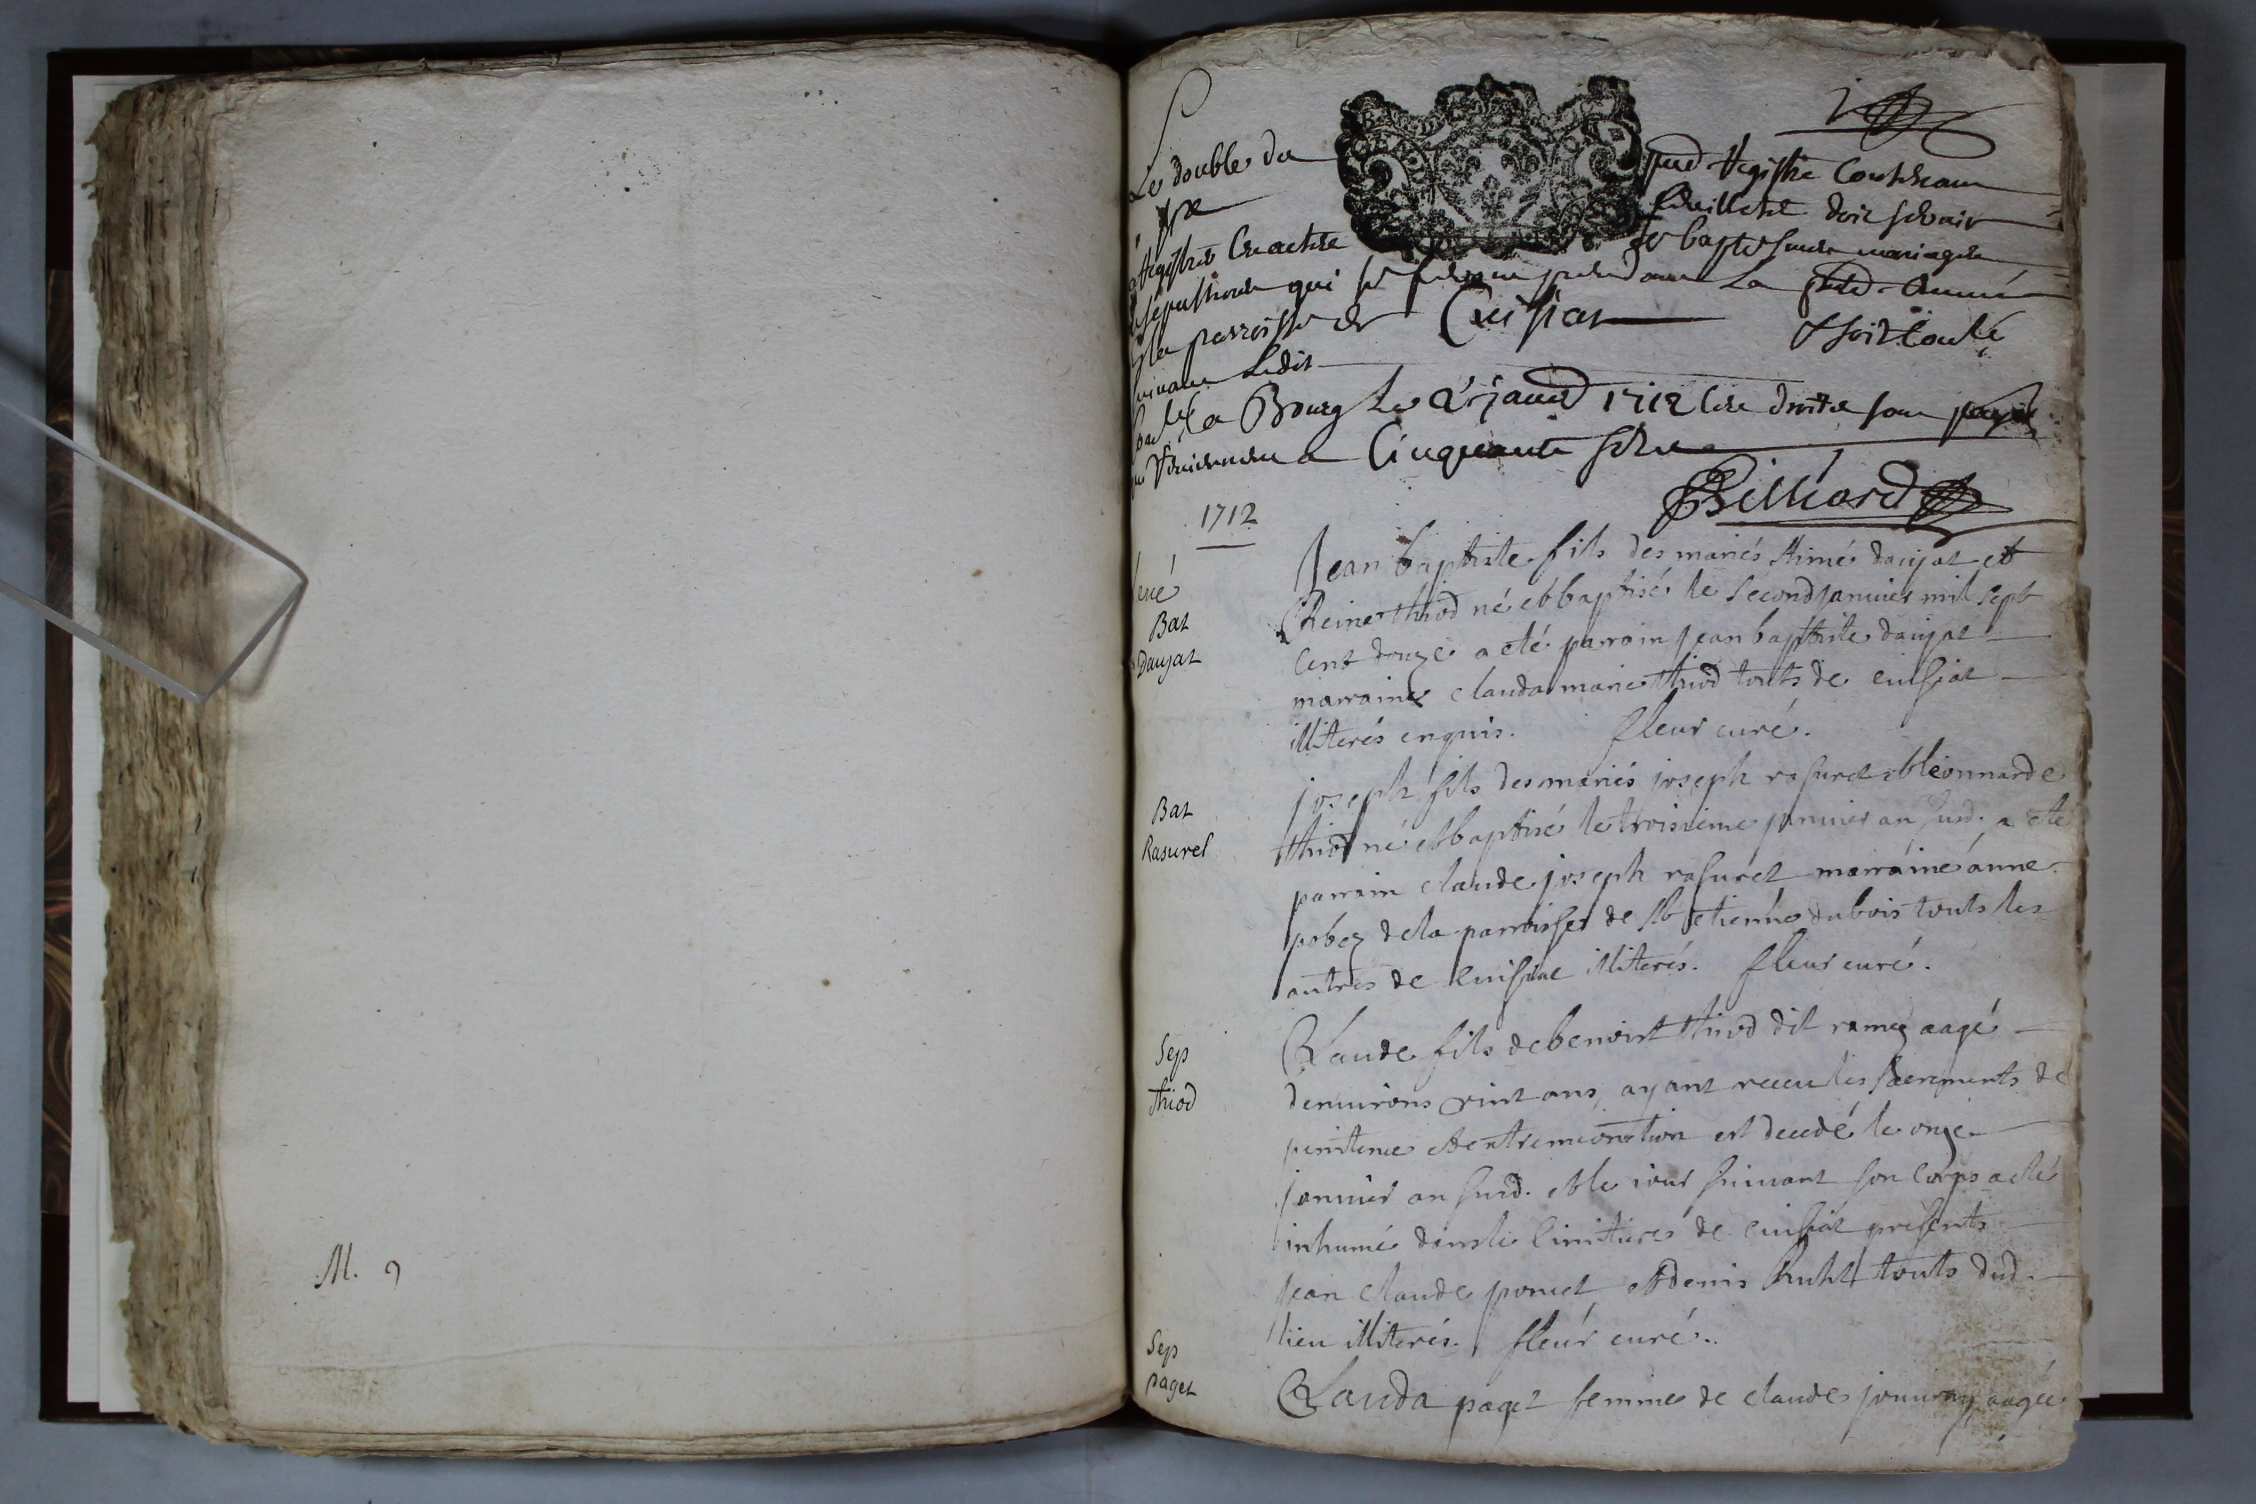 M. 9
Le double du pnt Registre Contenant
feuillets doit servir
Registrer les actes de baptesmes mariages
sepultures qui se feront pendant La pnte Année
la parroisse de Cuisiat soit Coulé
suivant Ledit
a Bourg Le 2 janvr 1712 les droits sont payés
a Cinquante sols
Billiard
1712
Bat
Daujat
Jean baptiste fils des mariés Aimé daujat et
Reine thiod né et baptisé le second janvier mil sept
cent douze a eté parrain jean baptiste daujat
marraine clauda marie thiod touts de cuisiat
illiterés enquis. fleur curé.
Bat
Rasurel
joseph fils des mariés joseph rasurel et bleonnarde
thiod né et baptisé le troisieme janvier an susd. a eté
parrain claude joseph rasurel marraine anne
pobez de la parroisse de st etienne du bois touts les
autres de Cuisiat illiterés. fleur curé.
Sep
thiod
Claude fils de benoist thiod dit ramez aagé
d'environs vint ans, ayant receu les sacrements de
penitence et extremeonction est decedé le onze
janvier an susd. et le jour suivant son corps a eté
inhumé dans le Cimitiere de cuisiat presents
jean claude poncet et denis touts dud.
lieu illiterés. fleur curé.
Sep
paget
Clauda paget femme de claude jouvray aagée